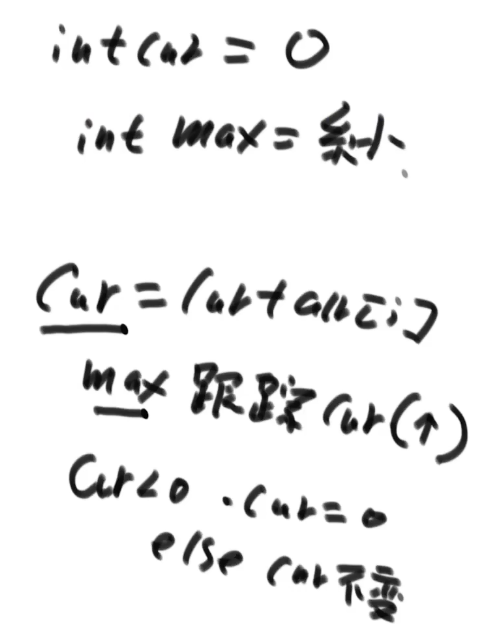 int cur = 0
int max = 系小
cur = cur + arr[i]
max 跟踪 cur(↑)
cur<0 . cur = 0
else cur 不变